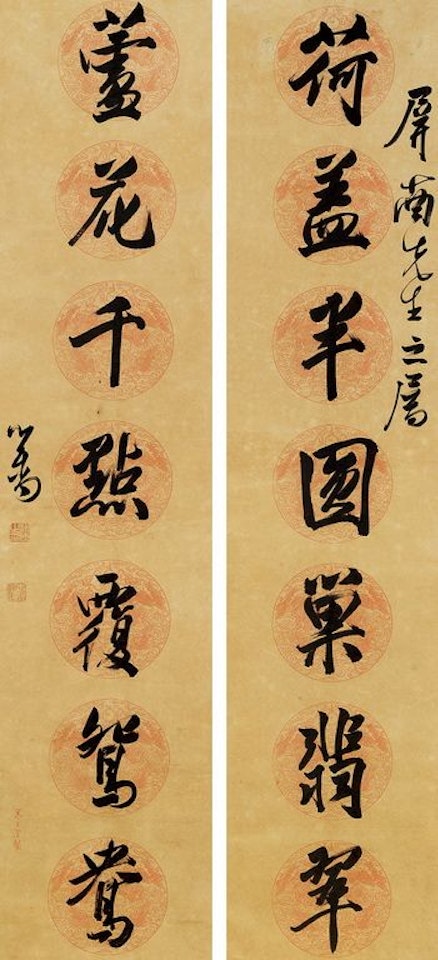 屏南先生之屬
荷盖半圓巢翡翠
蘆花千點覆鴛鴦
心畬